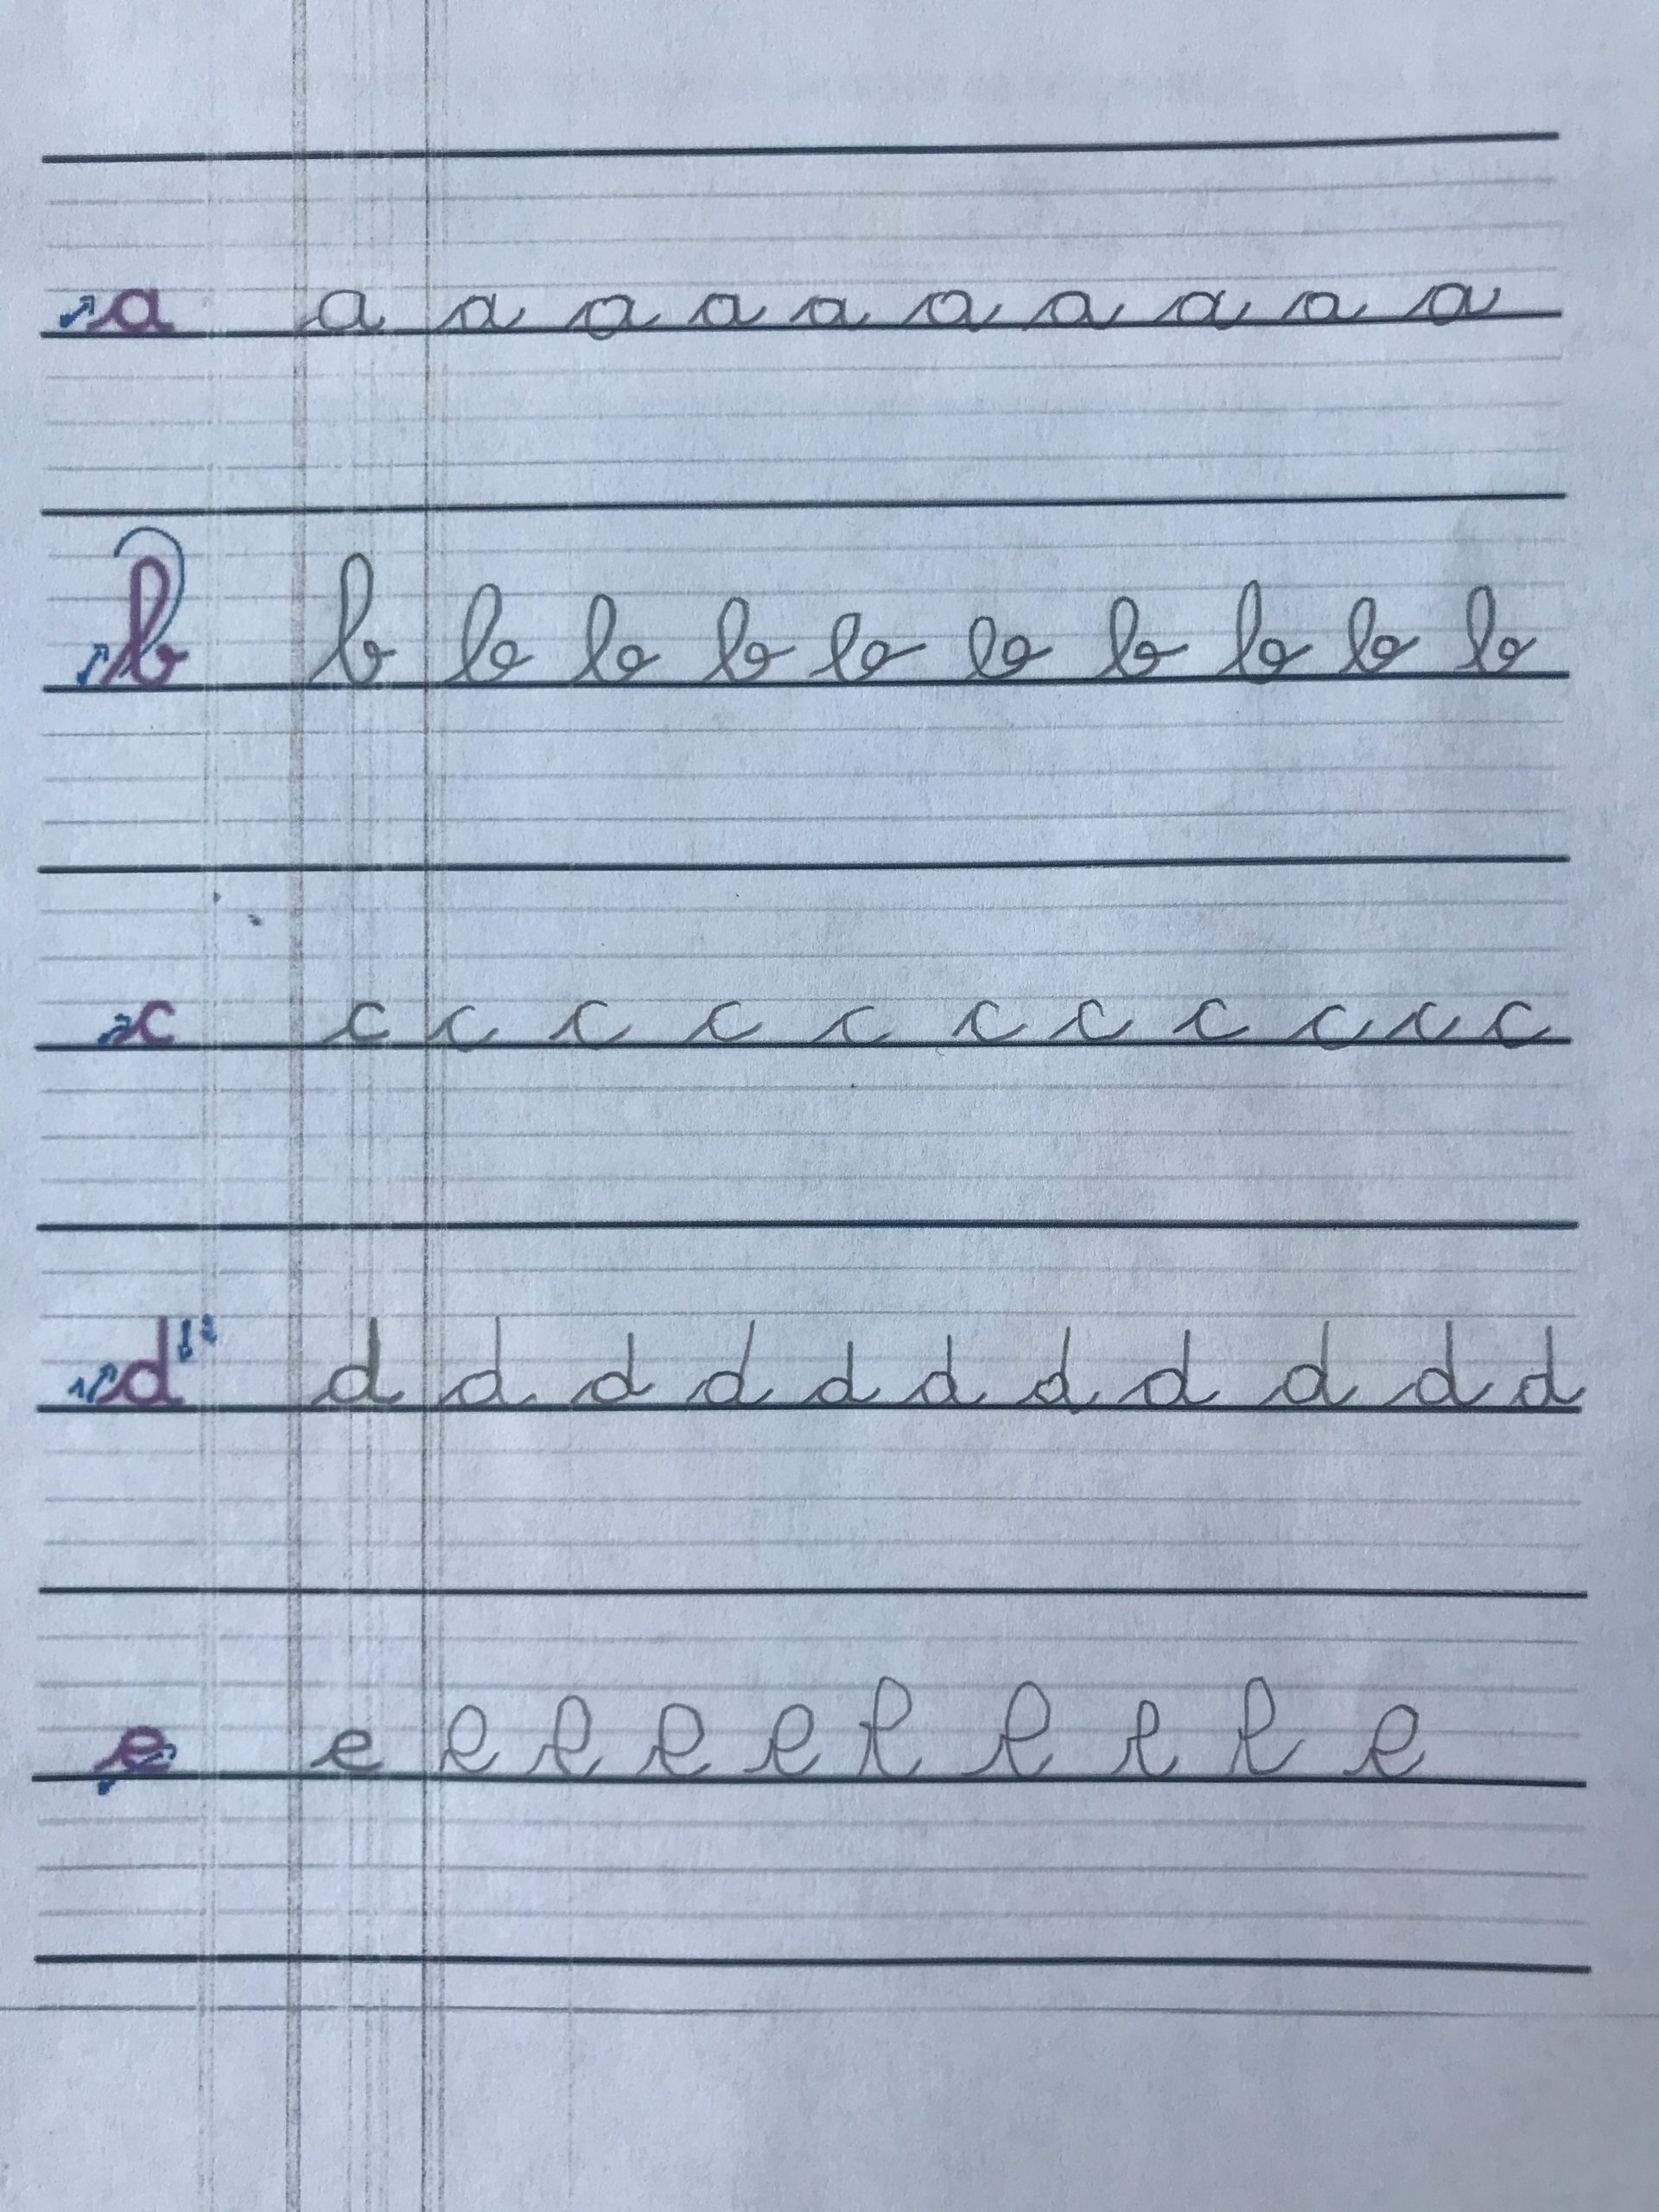 a a a a a a a a a a a
b b b b b b b b b b b
c c c c c c c c c c c c
1 d 2 d d d d d d d d d d d
e e e e e e e e e e e